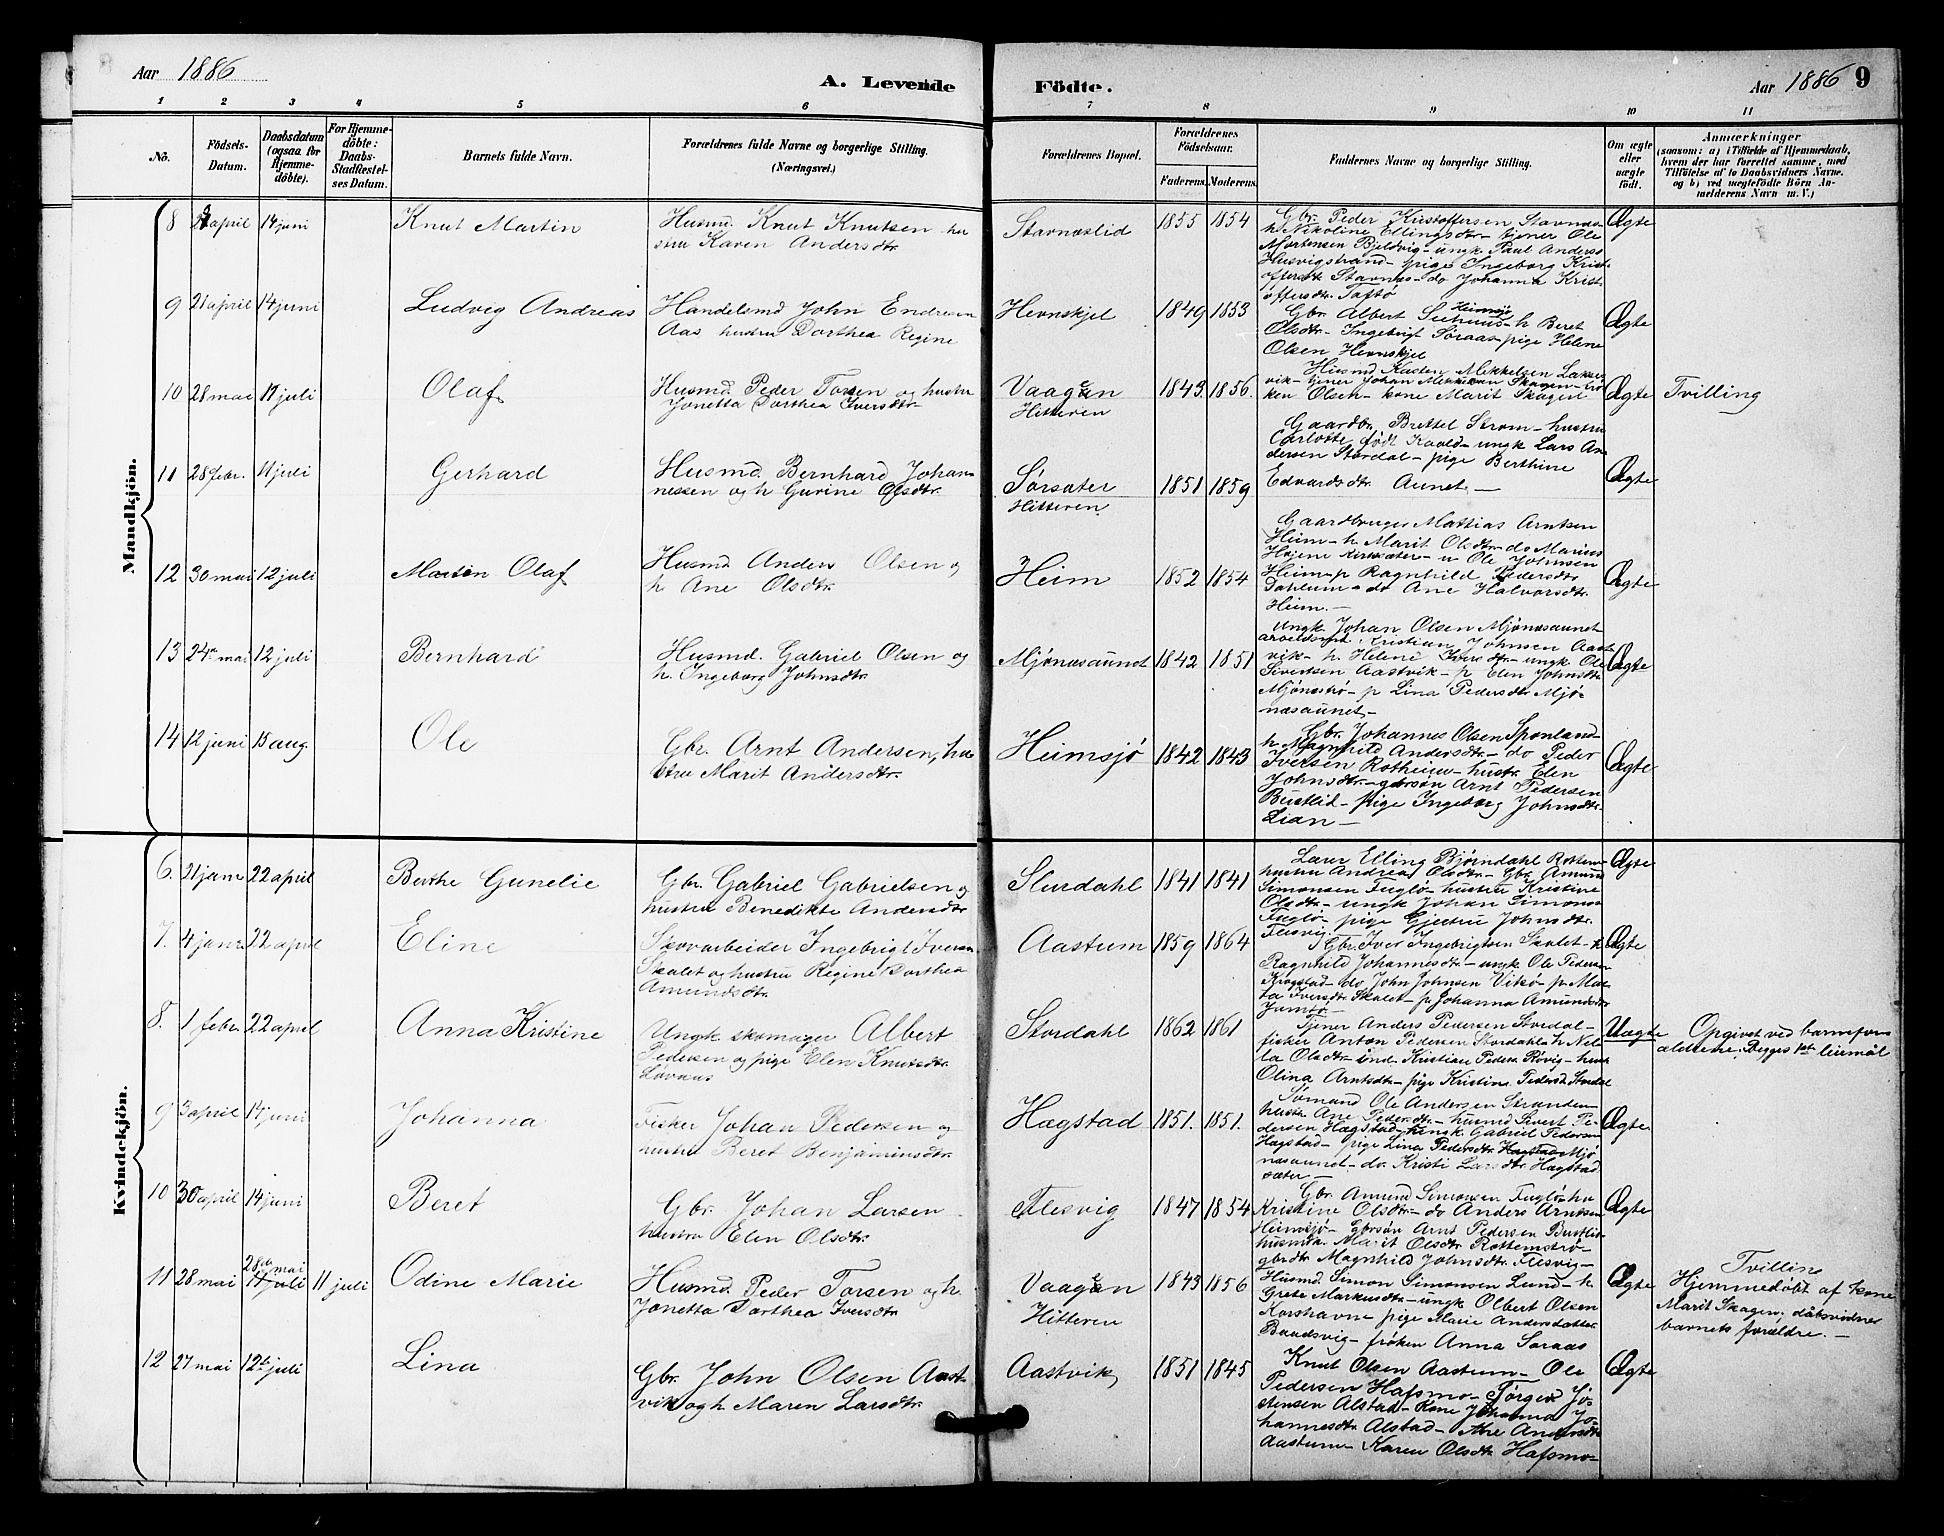 Aar 1886
A. Levende
Födte.
Aar 1886 9
1 2 3 4 5 6 7 8 9 10 11
No.
Födsels-
Datum.
Daabsdatum
(ogsaa for
Hjemme-
döbte).
For Hjemme-
döbte:
Daabs-
Stadfæstel-
ses Datum.
Barnets fulde Navn.
Forældrenes fulde Navne og borgerlige Stilling.
(Næringsvei.)
Forældrenes Bopæl.
Forældrenes
Födselsaar.
Faderens. Moderens.
Faddernes Navne og borgerlige Stilling.
Om ægte
eller
uægte
födt.
Anmærkninger
(saasom: a) i Tilfælde af Hjemmedaab,
hvem der har forrettet samme, med
Tilföielse af to Daabsvidners Navne,
og b) ved uægtefödte Börn An-
melderens Navn m. V.)
Mandkjön.
8 april 14 juni
Knut Martin
Husmd. Knut Knutsen hu
stru Karen Andersdtr.
Stavnæslid
1855 1854
Gbr. Peder Kristoffersen Stavnæs-
h. Nikoline Ellingsdtr- tjener Ole
Mortensen Bjeldvig- ungk Paul Anders
Husvigstrand- pige Ingeborg Krist-
offersdt Stavnes- do Johanna Krist
offersdtr. Taftö
Ægte
9 21 april 14 juni
Ludvig Andreas
Handelsmd John Endresen
Aas hustru Dorthea Regine
Hevnskjel
1849 1853
Heimsjø
Gbr Albert h Beret
Olsdtr- Ingebrigt Søraas- pige Helene
Olsen Hevnskjel
Ægte
10 28 mai 11 juli
Olaf
Husmd. Peder Torsen og hustru
Jonetta Dorthea Iversdtr.
Vaagen
Hitteren
1843. 1856.
Husmd Mikkelsen
vik- tjener Johan Skagen- frö
ken Olsen- kone Marit Skagen
Ægte
Tvilling
11 28 febr. 11 juli
Gerhard
Husmd. Bernhard Johan-
nessen og h Gurine Olsdtr.
Sørsæter
Hitteren
1851 1859
Gaardbr. Brettel Strøm- hustru
Carlotte født Kaald- ungk Lars An
dersen Stordal- pige Berthine
Edvardsdtr. Aunet-
Ægte
12 30 mai 12 juli
Morten Olaf
Husmd Anders Olsen og
h. Ane Olsdtr.
Heim
1852 1854
Gaardbruger Mattias Arntsen
Heim- h Marit Olsdtr- do Marius
Højene Kirksæter- u Ole Johnsen
Heim- p Ragnhild Pedersdtr
Dahlum- do Ane Halvorsdtr.
Heim.-
Ægte
13 24 mai 12 juli
Bernhard
Husmd. Gabriel Olsen og
h. Ingeborg Johnsdtr.
Mjønæsaunet
1842 1851
Ungk. Johan Olsen Mjønæsaunet-
arbeidsmd. Kristian Johnsen Aast
vik- h. Helene Iversdtr- ungk Ole
Sivertsen Aastvik- p Elen Johnsdtr
Mjønæstrø- p Lina Pedersdtr Mjø-
næsaunet-
Ægte
14 12 juni 15 aug.
Ole
Gbr. Arnt Andersen, hu
stru Marit Andersdtr.
Heimsjø
1842 1843
Gbr. Johannes Olsen Sponland-
h. Magnhild Andersdtr- do Peder
Iversen Rotheim- hustr. Elen
Johnsdtr- gbrsøn Arnt Pedersen
Bustlid- pige Ingeborg Johnsdtr
Lian-
Ægte
Kvindekjön.
6. 21 janr 22 april
Berthe Gunelie
Gbr. Gabriel Gabrielsen og
hustru Benedikte Andersdtr
Slurdahl
1841 1841
Lærer Elling Bjørndahl Rottem-
hustru Andrea Olsdtr- Gbr Amund
Simonsen Fuglø- hustru Kristine
Olsdtr- ungk Johan Simons
Fuglø- pige Gjertru Johnsdtr.
Flesvig.
Ægte
7. 4 janr 22 april
Eline
Skovarbeider Ingebrigt Iversen
Skalet og hustru Regine Dorthea
Amundsdtr.
Aastum
1859 1864
Gbr. Iver Ingebrigtsen Skalet- h
Ragnhild Johannesdtr- ungk Ole Pedersen
Krogstad- do John Johnsen Viksø- p Mar
ta Iversdtr Skalet- p Johanna Amundsdtr
Ægte
8. 1 febr. 22 april
Anna Kristine
Ungk skomager Albert
Pedersen og pige Elen Knutsdtr.
Løvnæs
Stordahl
1862 1861
Tjener Anders Pedersen Stordal-
fisker Anton Pedersen Stordahl- h Nel-
la Olsdtr- ind. Kristian Peders. Røvig- hust.
Olina Arntsdtr- pige Kristine Pedersd. Stordal
Uægte
Opgivet ved barnefor-
ældrene. Begges 1st leiermål
9 3 april 14 juni
Johanna
Fisker Johan Pedersen og
hustru Beret Benjaminsdtr.
Hagstad
1851. 1851.
Sømand Ole Andersen Stranden-
hustr. Ane Pedersdtr- husmd Sivert Pe-
dersen Hagstad- ungk. Gabriel Pedersen
Hagstad- pige Lina Pedersdtr Hagstad Mjø-
næsaunet- do Kristi Larsdtr Hagstad
sæter-
Ægte
10 30 april 14 juni
Beret
Gbr. Johan Larsen
hustru Elen Olsdtr.
Flesvig
1847 1854
Gbr. Amund Simonsen Fuglø- hu
Kristine Olsdtr- do Anders Arntsen
Heimsjø- Gbrsøn Arnt Pedersen Bustlid
husmk. Marit Olsdtr Rottemstrø-
gbrdtr. Magnhild Johnsdtr. Flesvig-
Ægte
11 28 mai 28de mai
11 juli 11 juli
Odine Marie
Husmd. Peder Torsen og h.
Jonetta Dorthea Iversdtr.
Vaagen
Hitteren
1843 1856
Husmd Simon Simonsen Lund- h.
Grete Markusdtr- ungk Olbert Olsen
Korshavn- pige Marie Andersdatter
Baadsvig- frøken Anna Søraas
Ægte
Tvilling
Hjemmedøbt af kone
Marit Skagen, dåbsvidner
barnets forældre.-
12 27 mai 12te juli
Lina
Gbr. John Olsen Aast-
vik og h. Maren Larsdtr.
Aastvik
1851 1845
Knut Olsen Aastum- Ole
Pedersen Hafsmo- Tørger Jo-
stensen Alstad- Kone Johanna Jo-
hannesdtr Alstad- Ane Andersdtr
Aastum- Karen Olsdtr Hafsmo-
Ægte